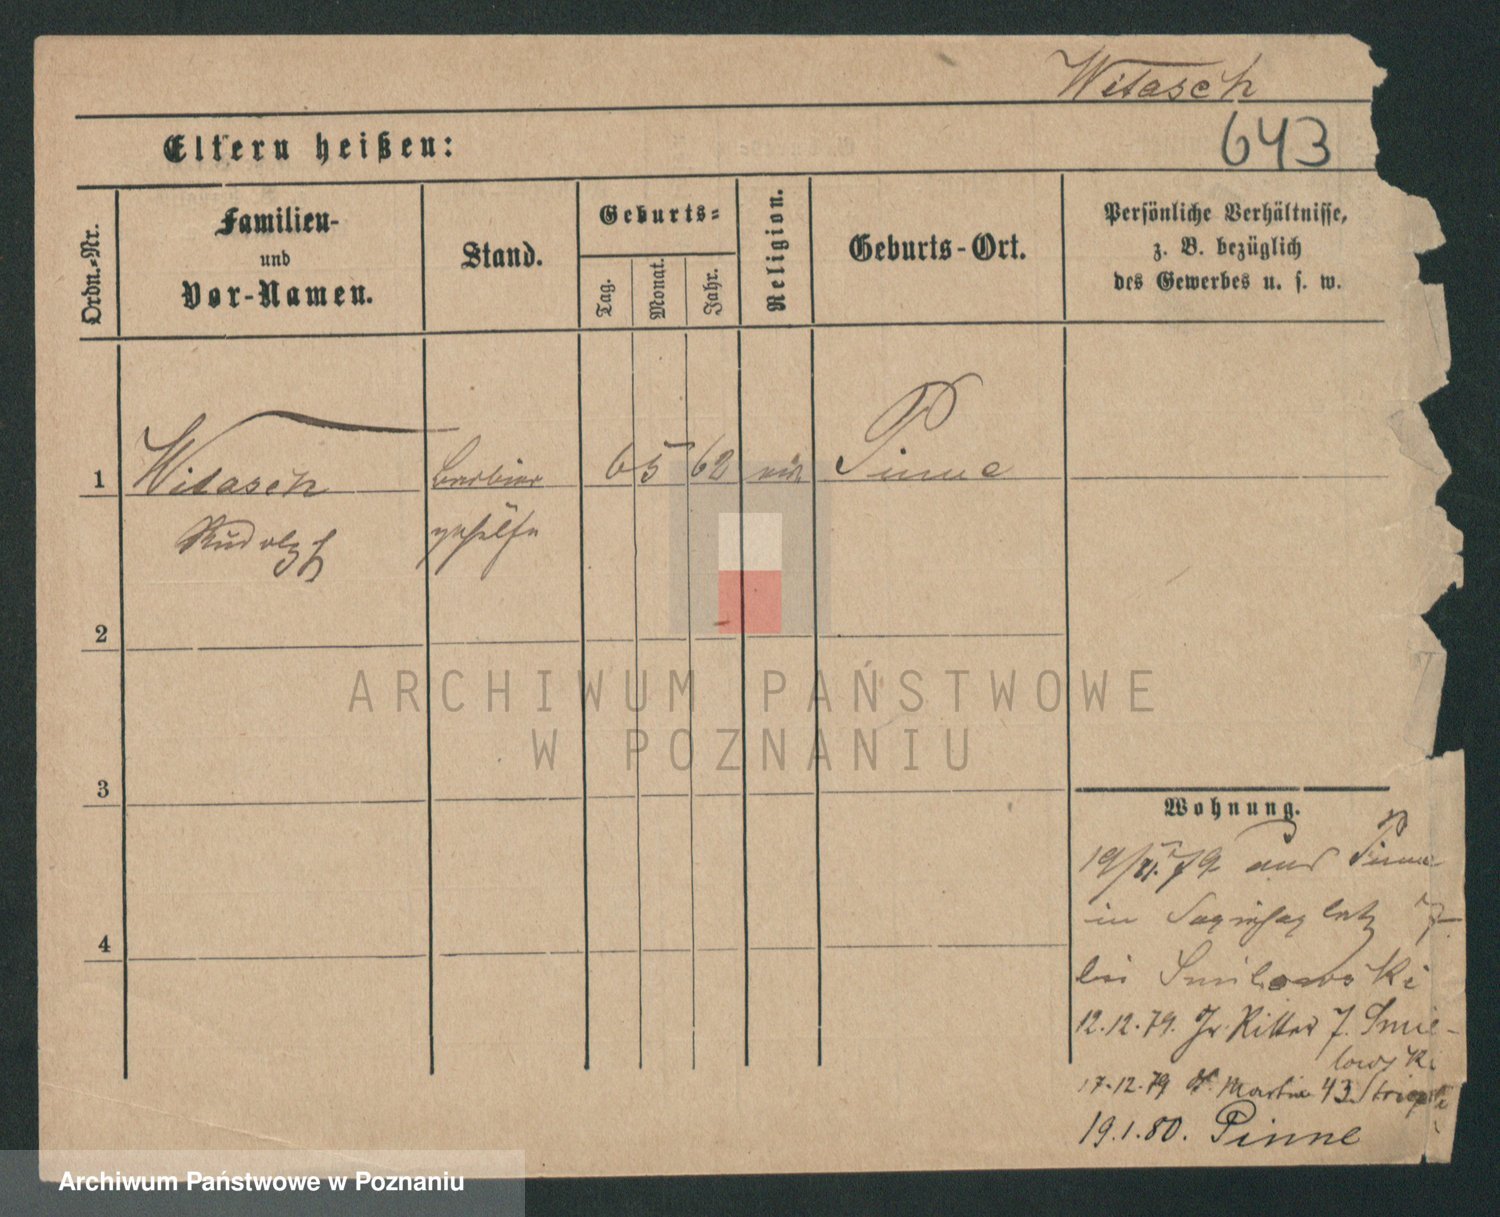 Witasch
643
Eltern heißen:
Ordn.-Nr.
Familien-
und
Vor-Namen.
Stand.
Geburts-
Tag.
Monat.
Jahr.
Religion.
Geburts-Ort.
Persönliche Verhältnisse,
z. B. bezüglich
des Gewerbes u. s. w.
1 Witasch Barbier 6 5 62 Pinne
Rudolph gehülfe
2
3
4
ARCHIWUM PAŃSTWOWE
W POZNANIU
Wohnung.
19/XI.79 aus Pinne
in Sapiehaplatz 7
bei Smilowski
12.12.79. Gr. Ritter 7. Smie-
lowski
17.12.79 St. Martin 43
19.1.80. Pinne
Archiwum Państwowe w Poznaniu